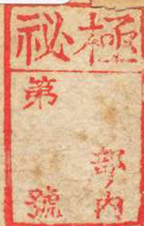 極秘
部内
第 號